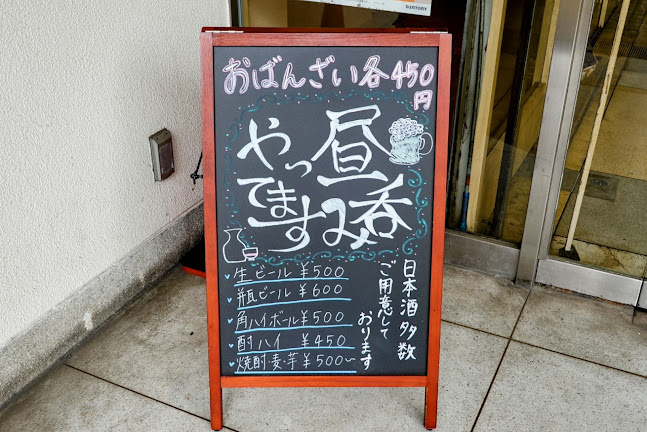 SUNTORY
おばんざい各450円
昼呑み
やってます
生ビール ¥500
瓶ビール ¥600
角ハイボール ¥500
酎ハイ ¥450
焼酎・麦・芋 ¥500〜
日本酒多数
ご用意して
おります